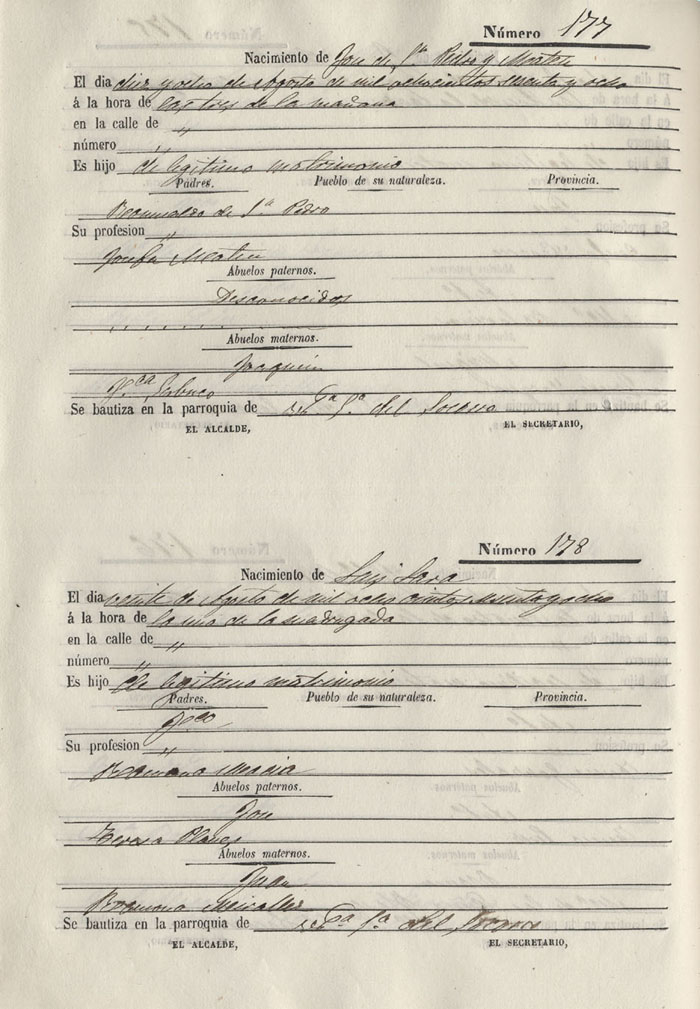 Número 177
Nacimiento de José de Sta Pedro y Mateu
El dia diez y ocho de Agosto de mil ochocientos sesenta y ocho
á la hora de las tres de la mañana
en la calle de "
número "
Es hijo de legitimo matrimonio
Padres. Pueblo de su naturaleza. Provincia.
Romualdo de Sta Pedro
Su profesion "
Josefa Mateu
Abuelos paternos.
Desconocidos
Abuelos maternos.
Joaquin
Fca
Se bautiza en la parroquia de Sa del Socorro
EL ALCALDE, EL SECRETARIO,
Número 178
Nacimiento de Luis Lara
El dia veinte de Agosto de mil ochocientos sesenta y ocho
á la hora de la una de la madrugada
en la calle de "
número "
Es hijo de legitimo matrimonio
Padres. Pueblo de su naturaleza. Provincia.
Fco
Su profesion "
Ramona Macia
Abuelos paternos.
José
Teresa Planes
Abuelos maternos.
Juan
Ramona Miralles
Se bautiza en la parroquia de Sa del Socorro
EL ALCALDE, EL SECRETARIO,